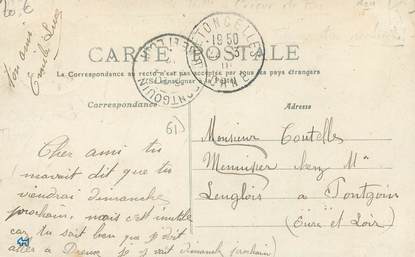 20 €
ton ami
Emile
CARTE POSTALE
La Correspondance au recto n'est pas acceptée par tous les pays étrangers
(Se renseigner à la Poste)
Correspondance
Adresse
61
Monsieur Toutelles
Menuisier chez Mr
Lenglois à Pontgoin
(Eure et Loir)
Cher ami tu
maurait dit que tu
viendrai dimanche
prochain, mais c'est inutile
car tu sait bien que je doit
aller à Dreux je y vait dimanche prochain)